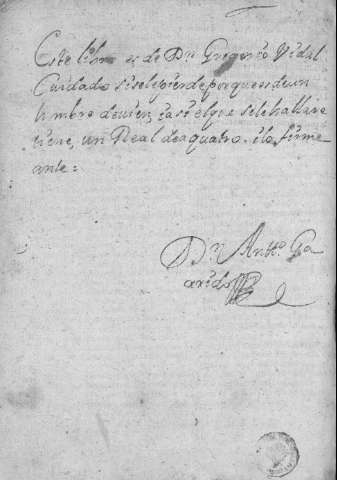 Este libro es de Dn Gregorio Vidal
Cuidado si selepierde porques deun
hombre deuien, ia si el que sele hallare
tiene, un Real deaquatro. ilo firme
ante:
Dn Antto. Ga